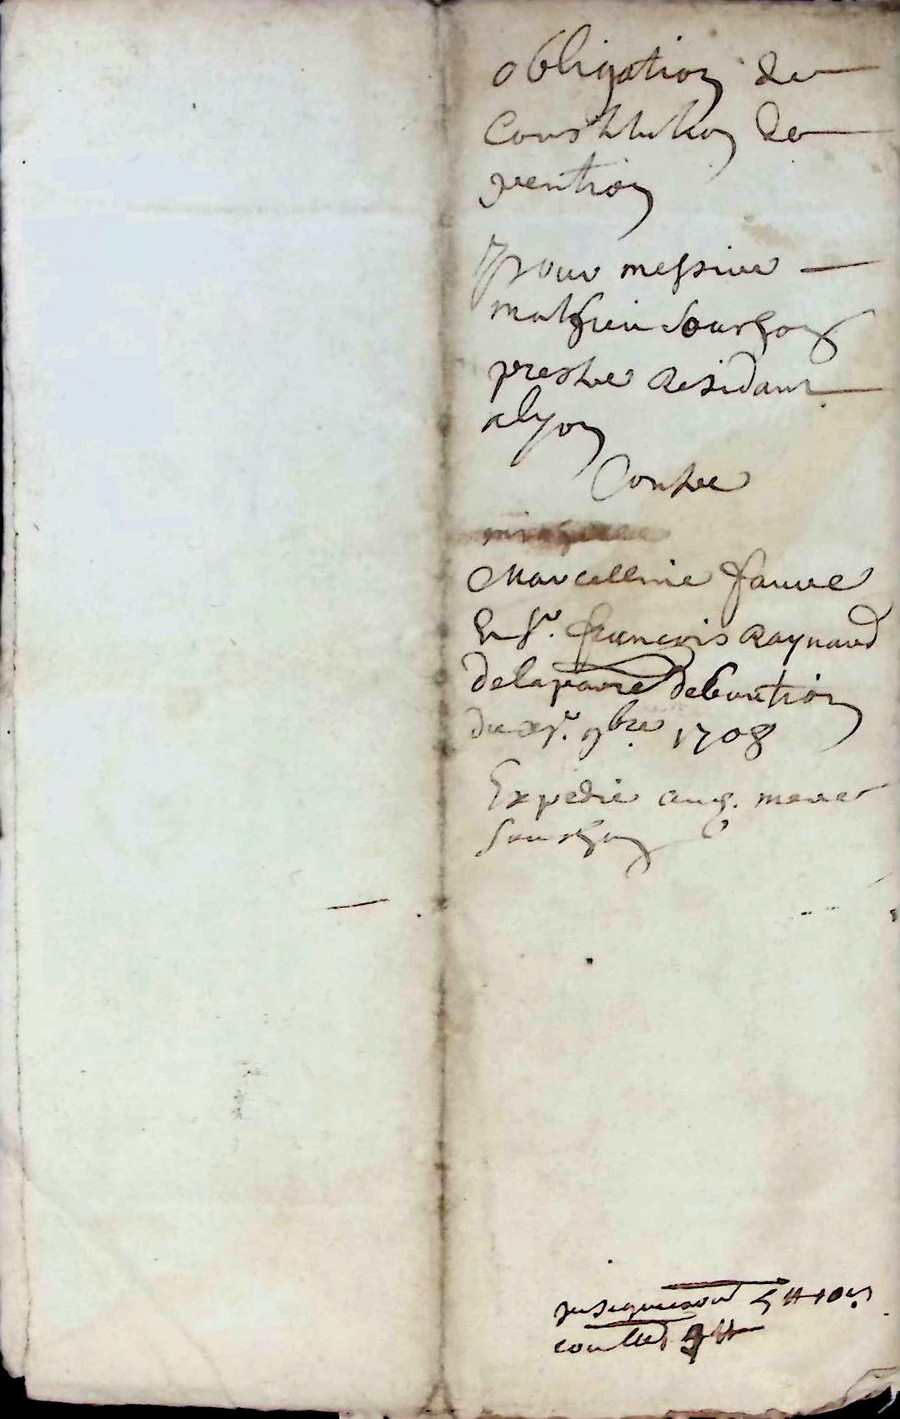 obligation de
Constitution de
pention
pour messire
mathieu Sourgon
prestre Residant
a lyon
Contre
Marcelline faure
Et sr. françois Raynaud
de la faure de bention
du xe. 9bre 1708
Expedie aud. messire
Sourgon
5 tt 10 s